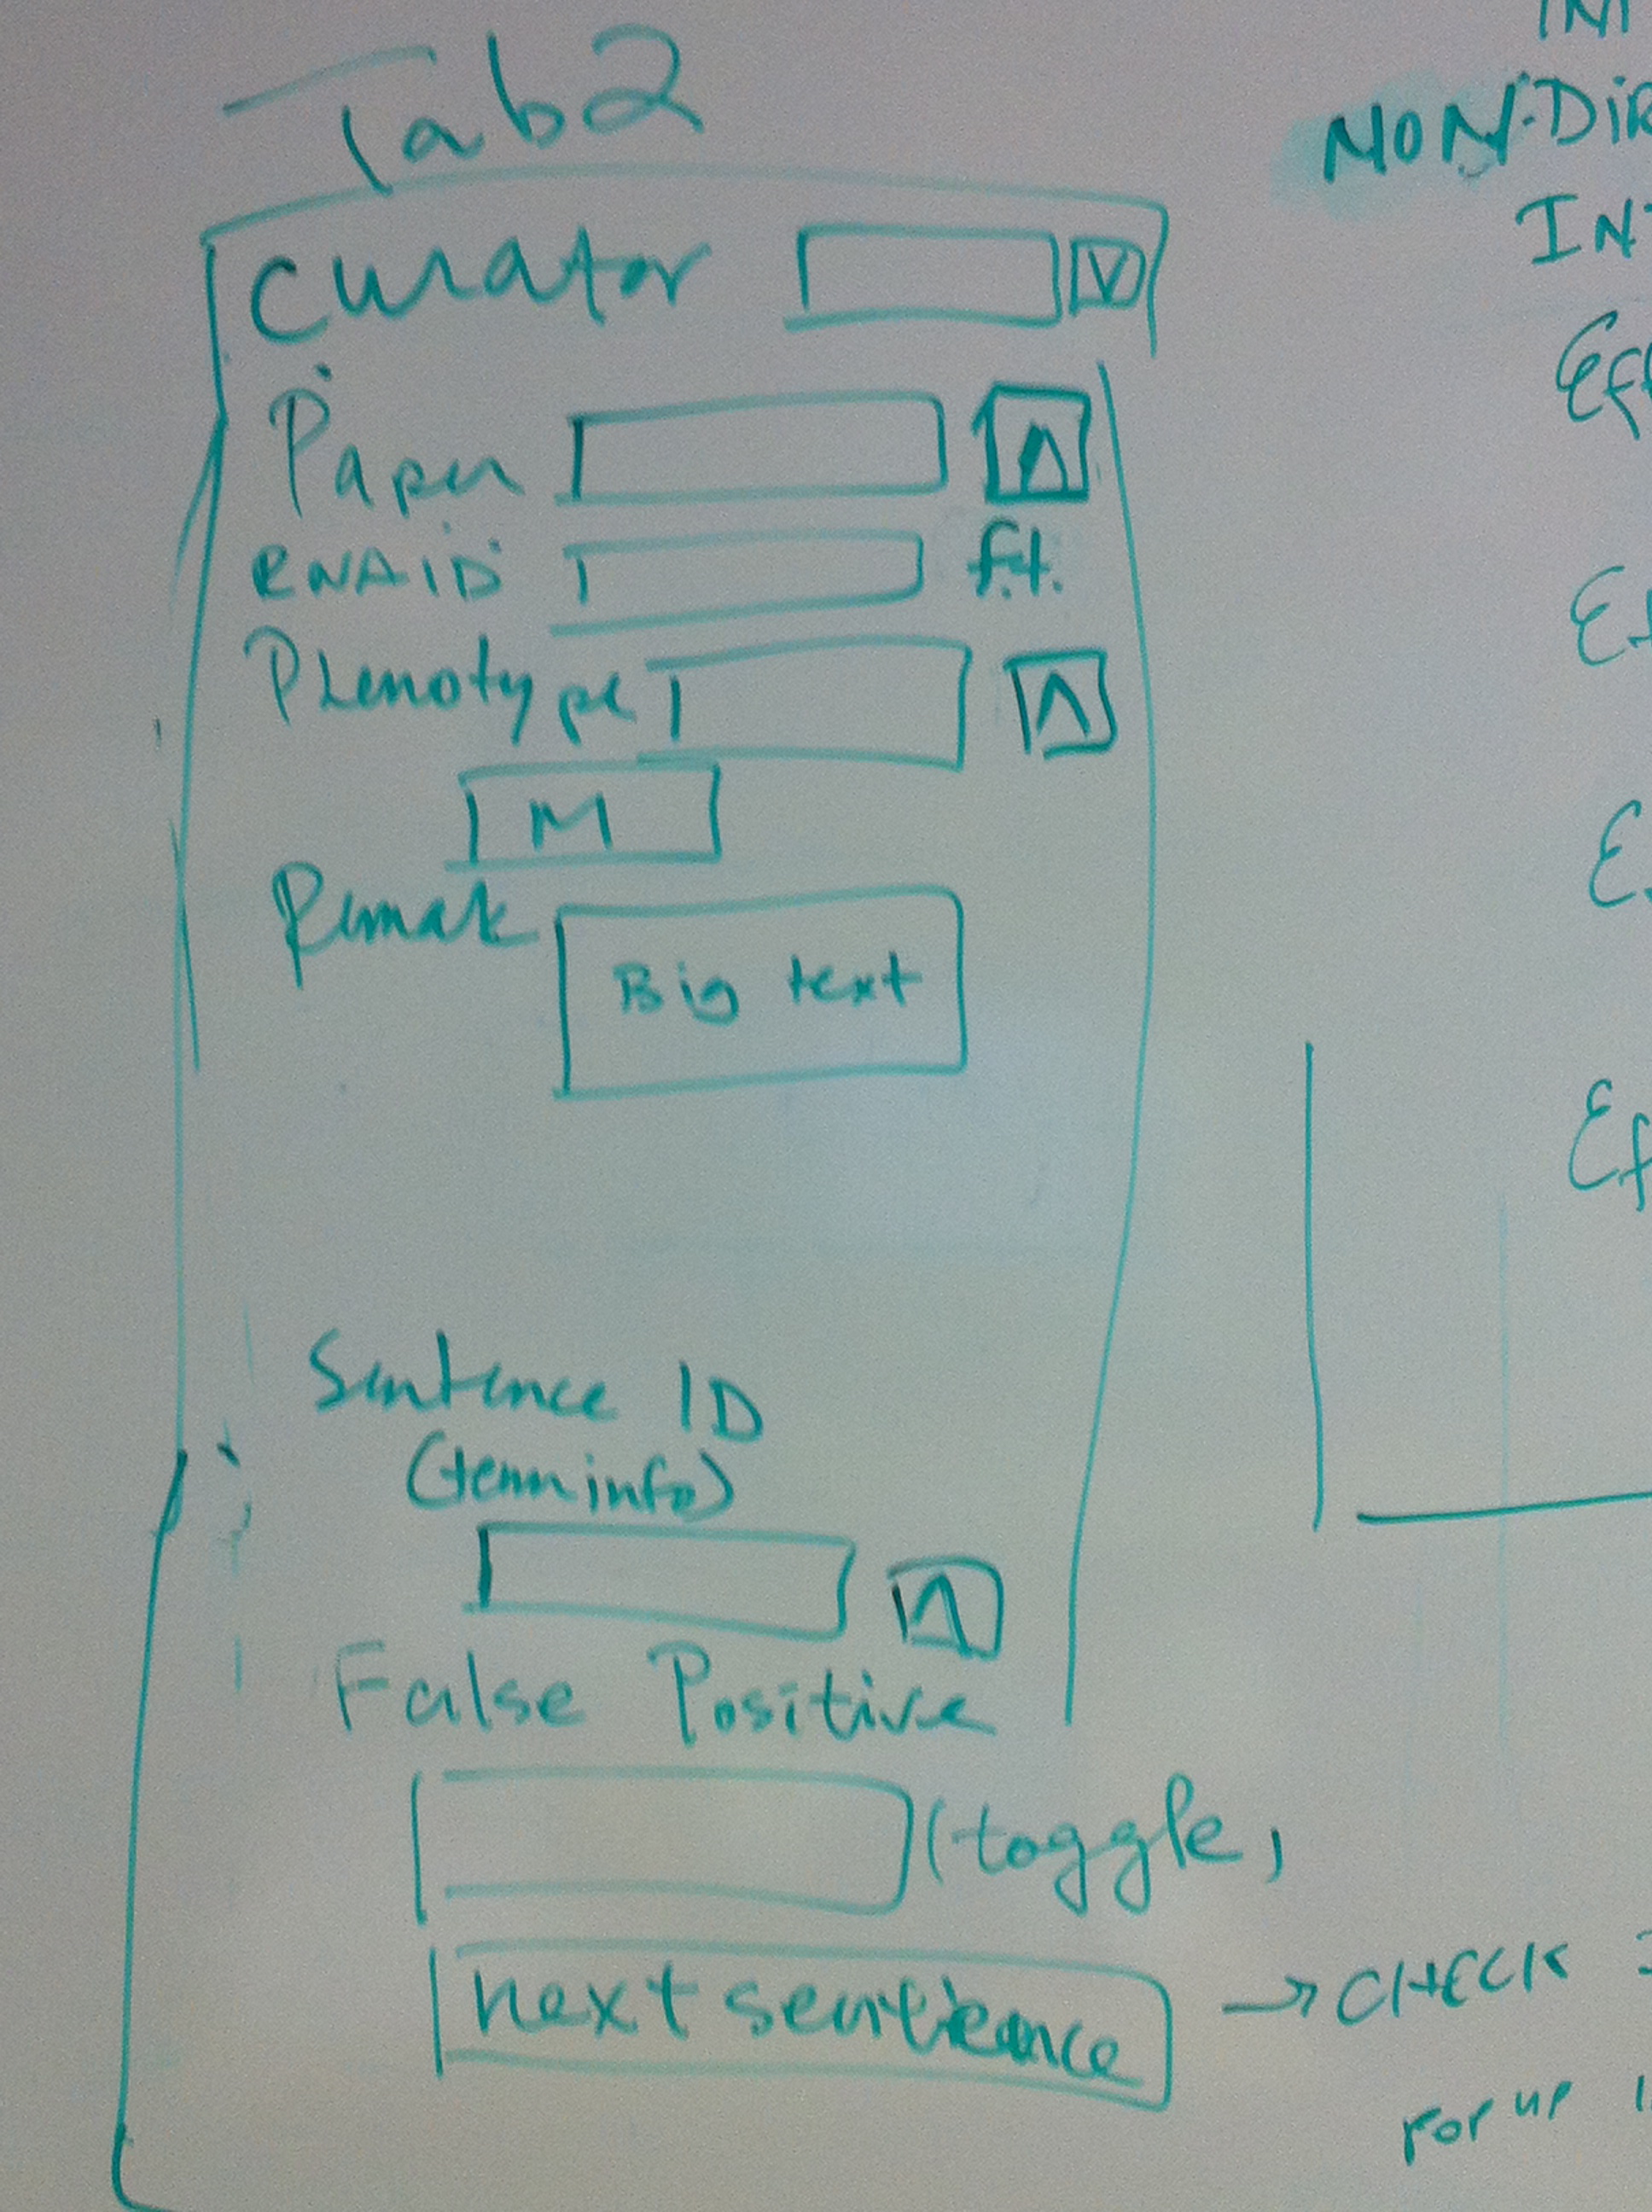 Tab2
Curator
Paper
RNAID f.t.
Phenotype
M
Remark
Big text
Sentence ID
(term info)
False Positive
(toggle)
next sentence → CHECK
POP UP
NON-DIR
INT
Eff
Ef